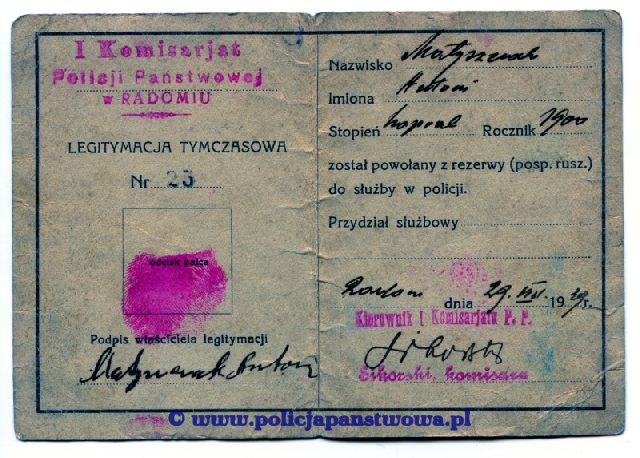 I Komisarjat
Policji Państwowej
w RADOMIU
LEGITYMACJA TYMCZASOWA
Nr 23
odcisk palca
Podpis właściciela legitymacji
Antoni
Nazwisko
Imiona Antoni
Stopień kapral Rocznik 1900
został powołany z rezerwy (posp. rusz.)
do służby w policji.
Przydział służbowy
Radom dnia 29. VIII 1939 r.
Kierownik I Komisarjatu P. P.
Sikorski, komisarz
© www.policjapanstwowa.pl